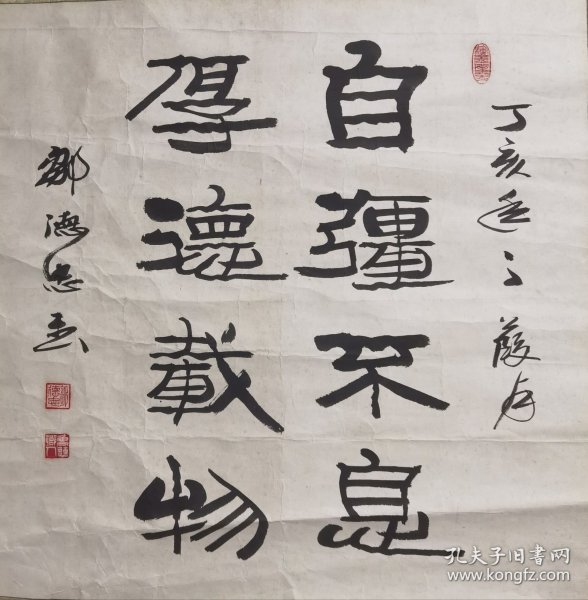 丁亥年之葭月
自彊不息
厚德載物
鄒德忠書
孔夫子旧书网
www.kongfz.com